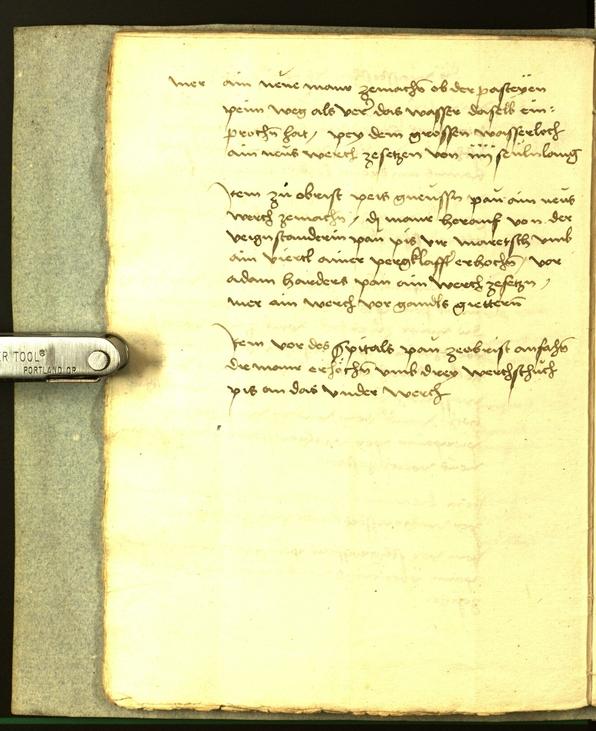 mer ain neue maur zemachn ob der pasteyen
peim weg als ver das wasser daselb ein=
prochn hat / pey dem grossen wasserloch
ain neus werch zesetzen von iiij seulnlang
Item zu obrist peis pau ain neus
werch zemachn / di maur herauf von der
pau pis vir maretsch umb
ain viertl ainer pergklaffl erhochn / vor
adam harders pau ain werch zesetzn /
mer ain werch vor gandls giettern
Item vor des Spitals pau zeobrist anfahn
die maur erhöchn umb drey werchschuch
pis an das vnder werch
ER TOOL®
PORTLAND, OR.